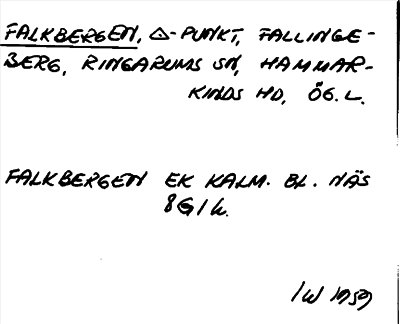 FALKBERGEN, △-PUNKT, FALLINGE-
BERG, RINGARUMS SN, HAMMAR-
KINDS HD, ÖG. L.
FALKBERGEN EK KALM. BL. NÄS
8G/h.
IW 1959